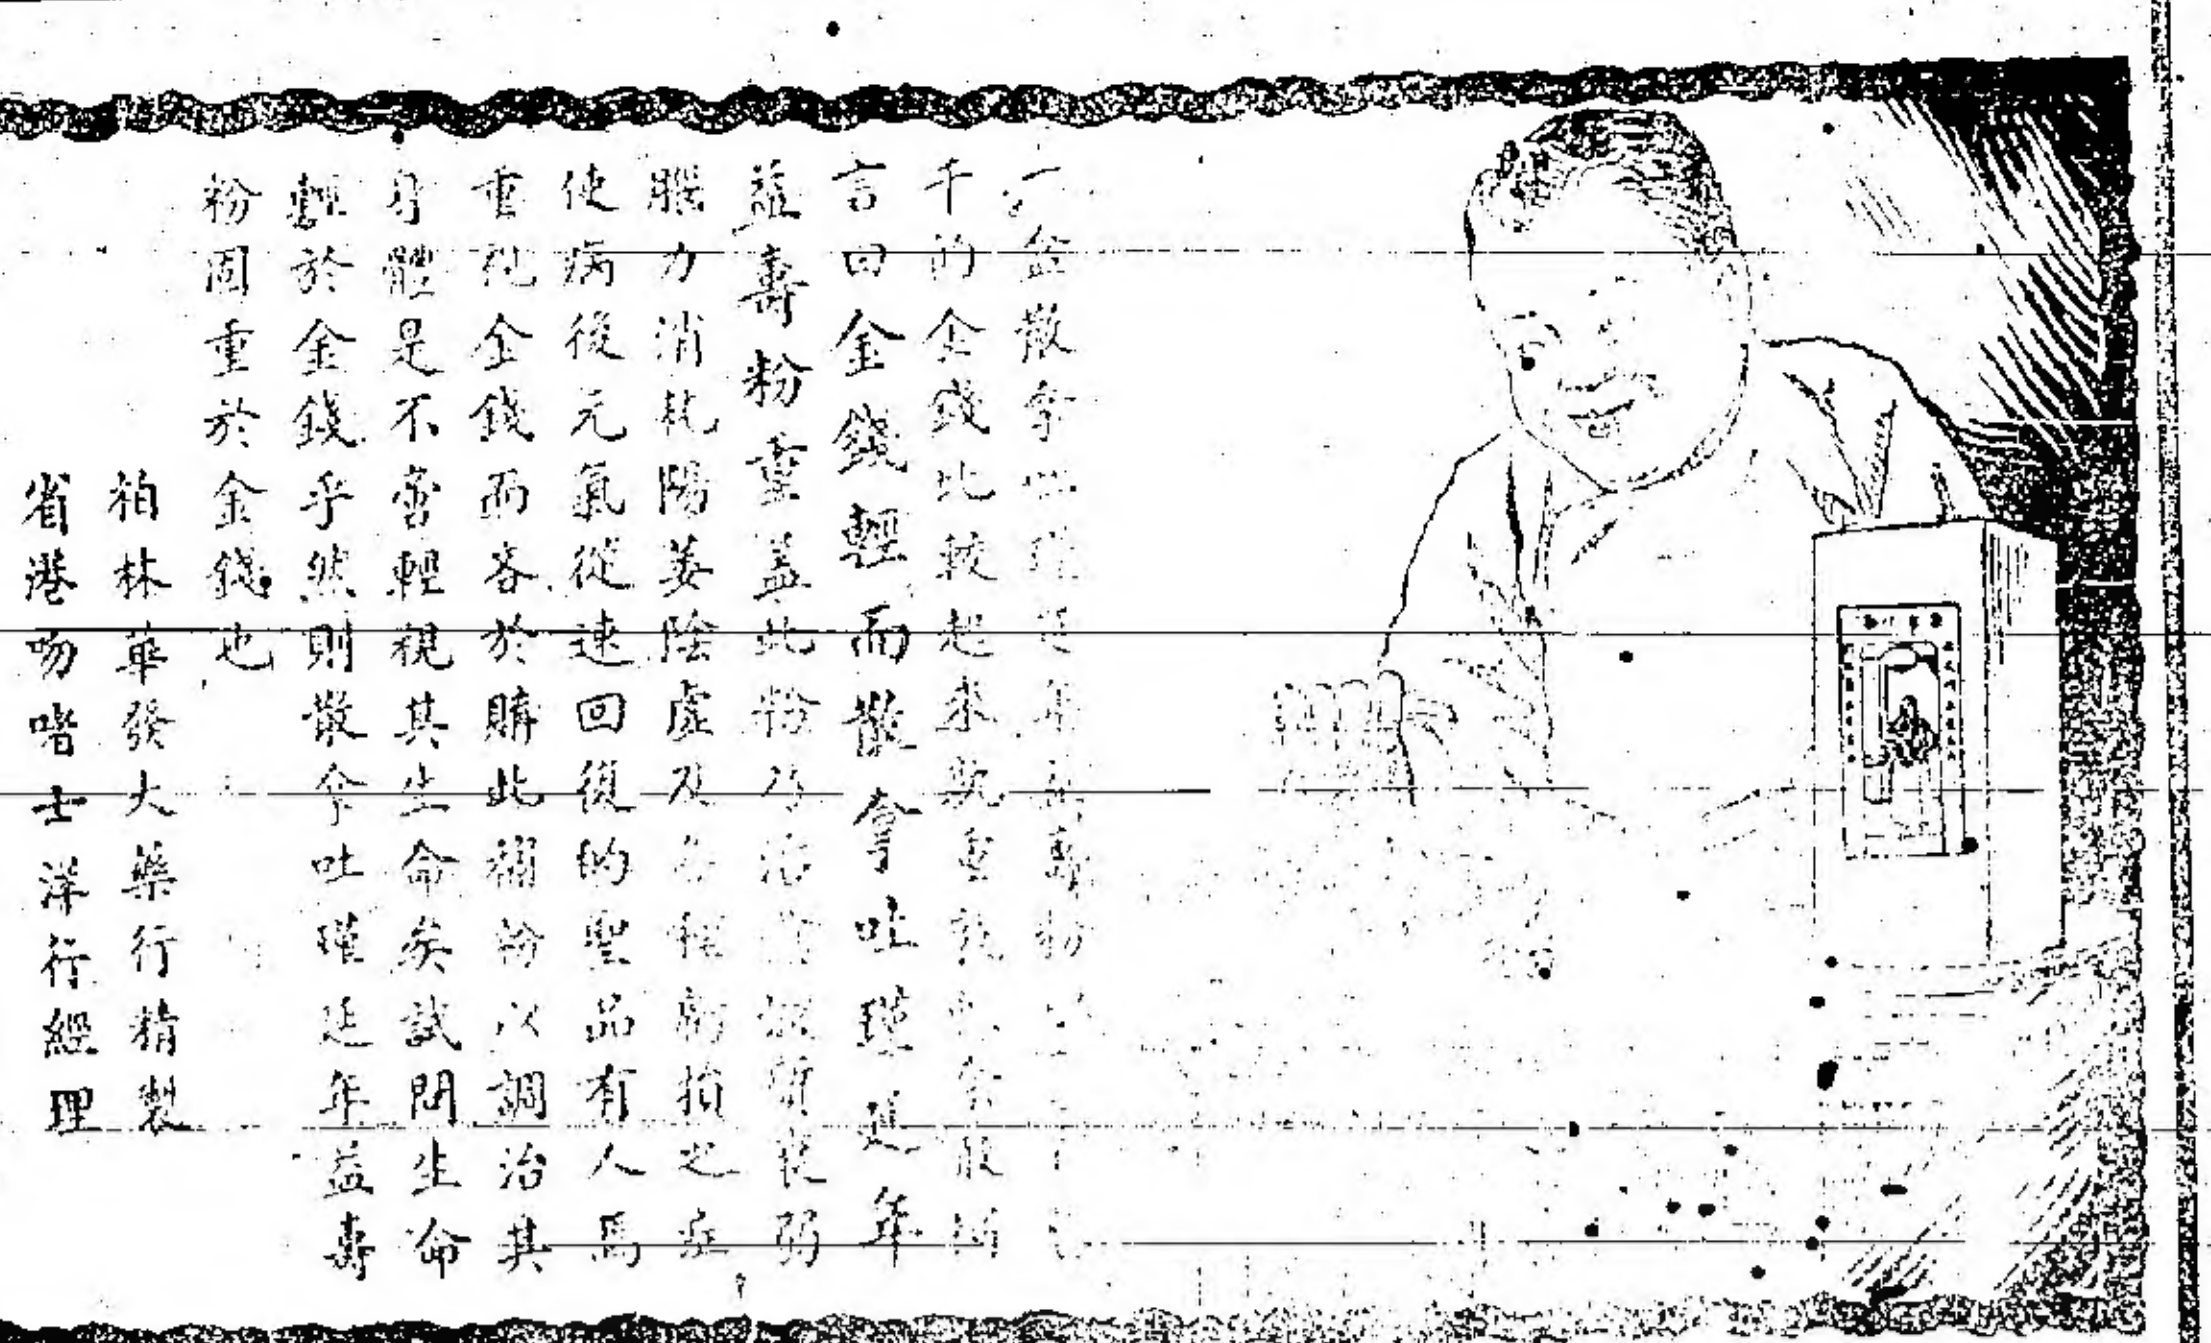 一盒散拿吐瑾延年益壽粉
千的金錢比較起來孰重孰
言曰金錢輕而散拿吐瑾延年
益壽粉重蓋此粉乃治
腦力消耗陽萎陰虛及各種虧損之症
使病後元氣從速回復的聖品有人焉
重視金錢而吝於購此補粉以調治其
身體是不啻輕視其生命矣試問生命
輕於金錢乎然則散拿吐瑾延年益壽
粉固重於金錢也
柏林華發大藥行精製
省港吻喈士洋行經理